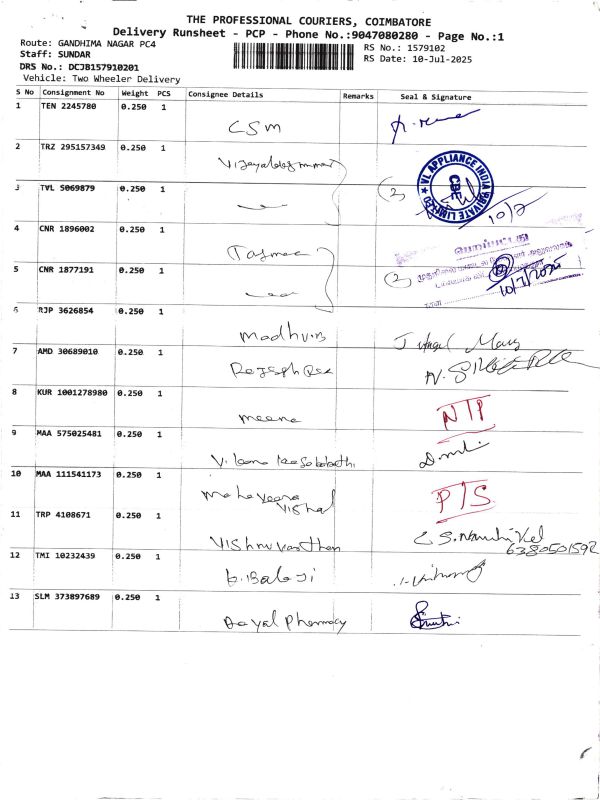 THE PROFESSIONAL COURIERS, COIMBATORE
Delivery Runsheet - PCP - Phone No.:9047080280 - Page No.:1
Route: GANDHIMA NAGAR PC4
RS No.: 1579102
Staff: SUNDAR
RS Date: 10-Jul-2025
DRS No.: DCJB157910201
Vehicle: Two Wheeler Delivery
S No Consignment No Weight PCS Consignee Details Remarks Seal & Signature
1 TEN 2245780 0.250 1
CSM
2 TRZ 295157349 0.250 1
VL APPLIANCE INDIA PRIVATE LIMITED
CBE
3 TVL 5069879 0.250 1
(2)
10/7
4 CNR 1896002 0.250 1
5 CNR 1877191 0.250 1
(2)
10/7/2025
6 RJP 3626854 0.250 1
7 AMD 30689010 0.250 1
8 KUR 1001278980 0.250 1
meena N/P
9 MAA 575025481 0.250 1
10 MAA 111541173 0.250 1
Vishal P/S
11 TRP 4108671 0.250 1
6380501592
12 TMI 10232439 0.250 1
b. Balaji
13 SLM 373897689 0.250 1
Dayal Pharmacy